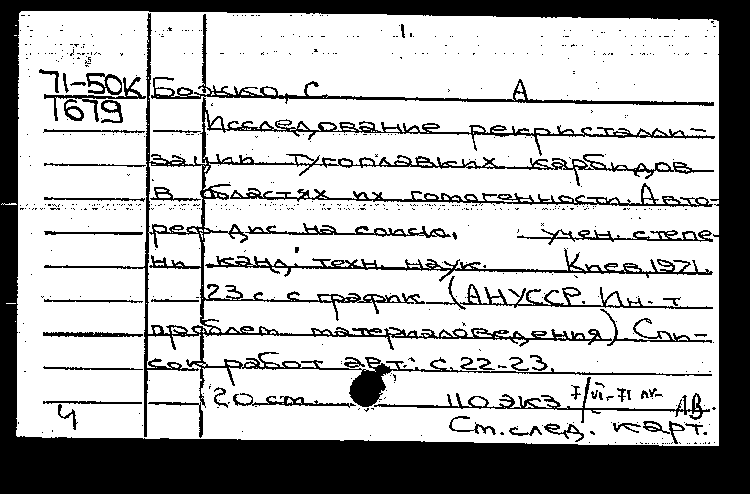 1.
71-50К Божко, С. А
1679
Исследование рекристалли-
зации тугоплавких карбидов
в областях их гомогенности. Авто-
реф дис на соиск. учен. степе-
ни канд. техн. наук. Киев, 1971.
23 с. с график (АН УССР. Ин-т
проблем материаловедения) Спи-
сок работ авт.: с. 22-23.
20 см. 110 экз. I/VI-71 АВ.
Ч См. след. карт.